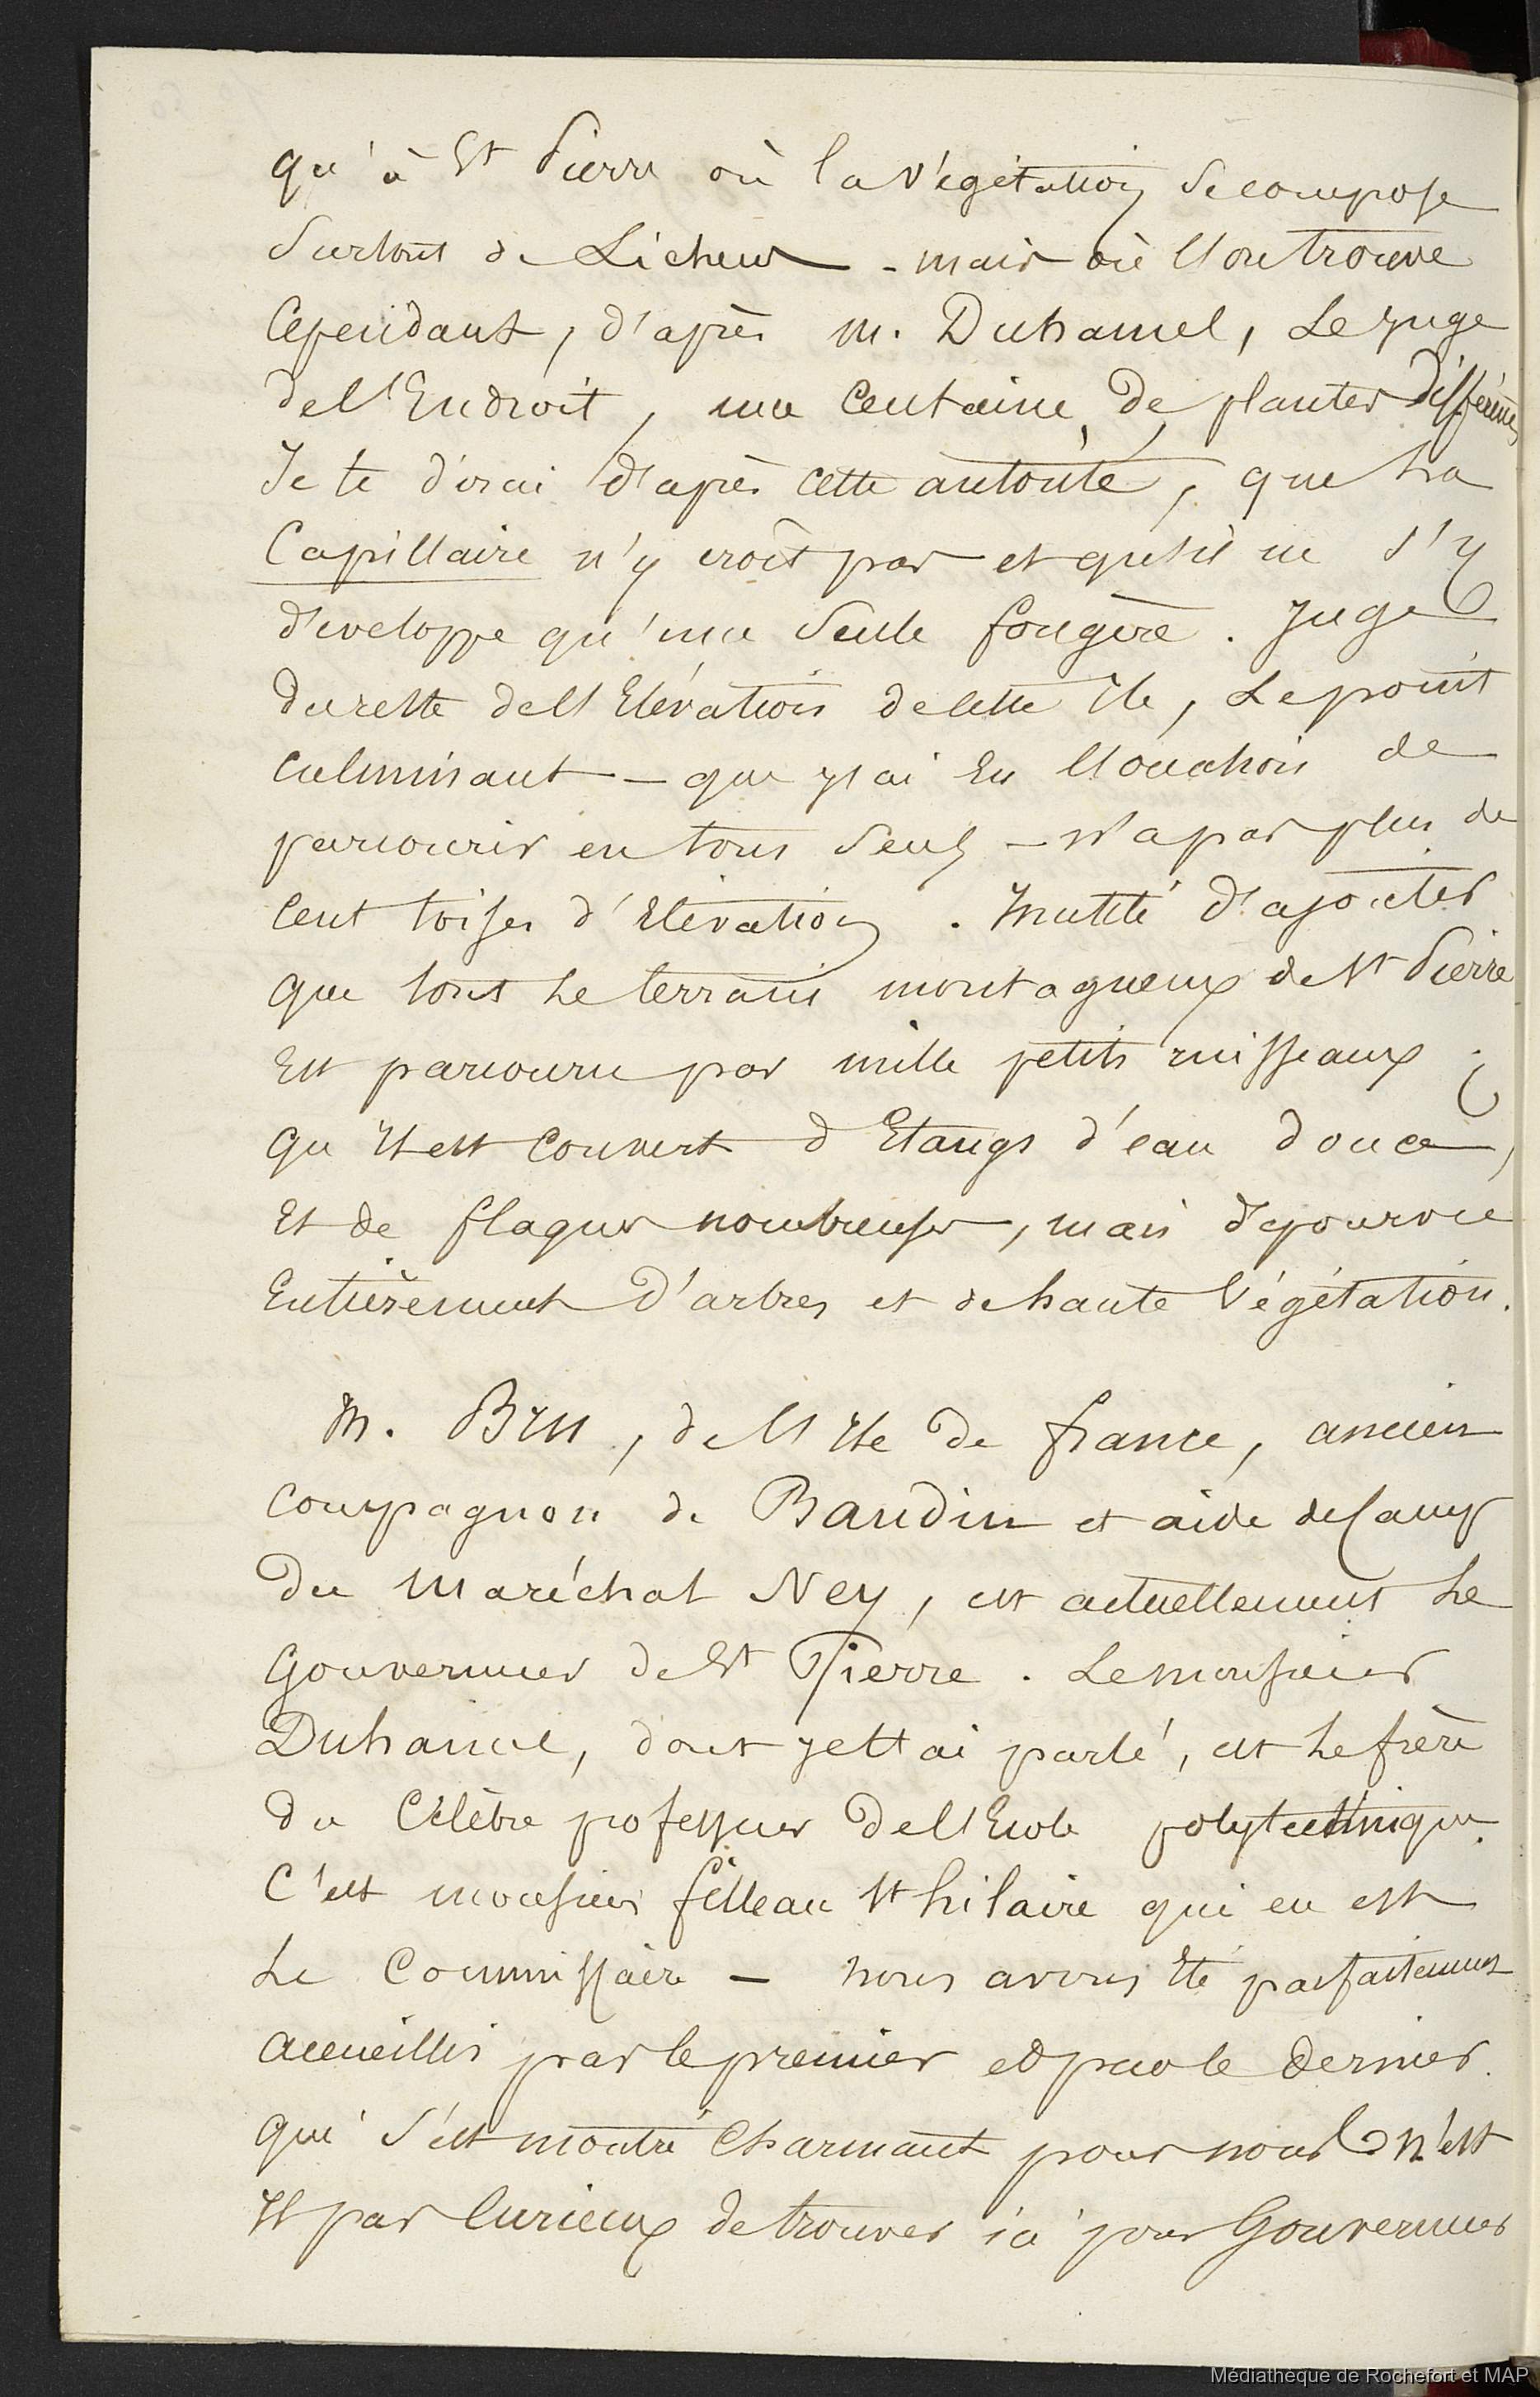 qu'à St Pierre où la Végétation se compose
surtout de Lichens - mais où l'on trouve
Cependant, d'après M. Duhamel, Le Juge
de l'Endroit, une Centaine de plantes différentes
Je te dirai d'après cette autorité, que La
Capillaire n'y croît pas et qu'il ne s'y
développe qu'une Seule fougère. Juge
du reste de l'Elévation de cette Ile, Le point
culminant - que j'ai Eu l'occasion de
parcourir en tous Sens - n'a pas plus de
Cent toises d'Elévation. Inutile d'ajouter
que tout Le terrain montagneux de St Pierre
Est parcouru par mille petits ruisseaux ;
qu'Il est Couvert d'Etangs d'eau douce,
Et de flaques nombreuses, mais dépourvu
Entièrement D'arbres et de haute Végétation.
M. Brü, de l'Ile De france, ancien
compagnon de Baudin et aide de Camp
Du Maréchal Ney, est actuellement Le
Gouverneur de St Pierre. Le monsieur
Duhamel, dont je t'ai parlé, est Le frère
du Célèbre professeur De l'Ecole polytechnique.
C'est monsieur filleau St hilaire qui en est
Le Commissaire - Nous avons Eté parfaitement
accueillis par le premier et par le dernier.
qui s'est montré Charmant pour nous N'est
Il pas Curieux de trouver ici pour Gouverneur
Médiathèque de Rochefort et MAP